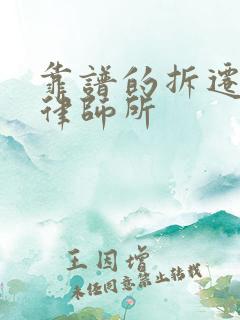 靠譜的拆遷
律師所
王因增
未经同意禁止转载